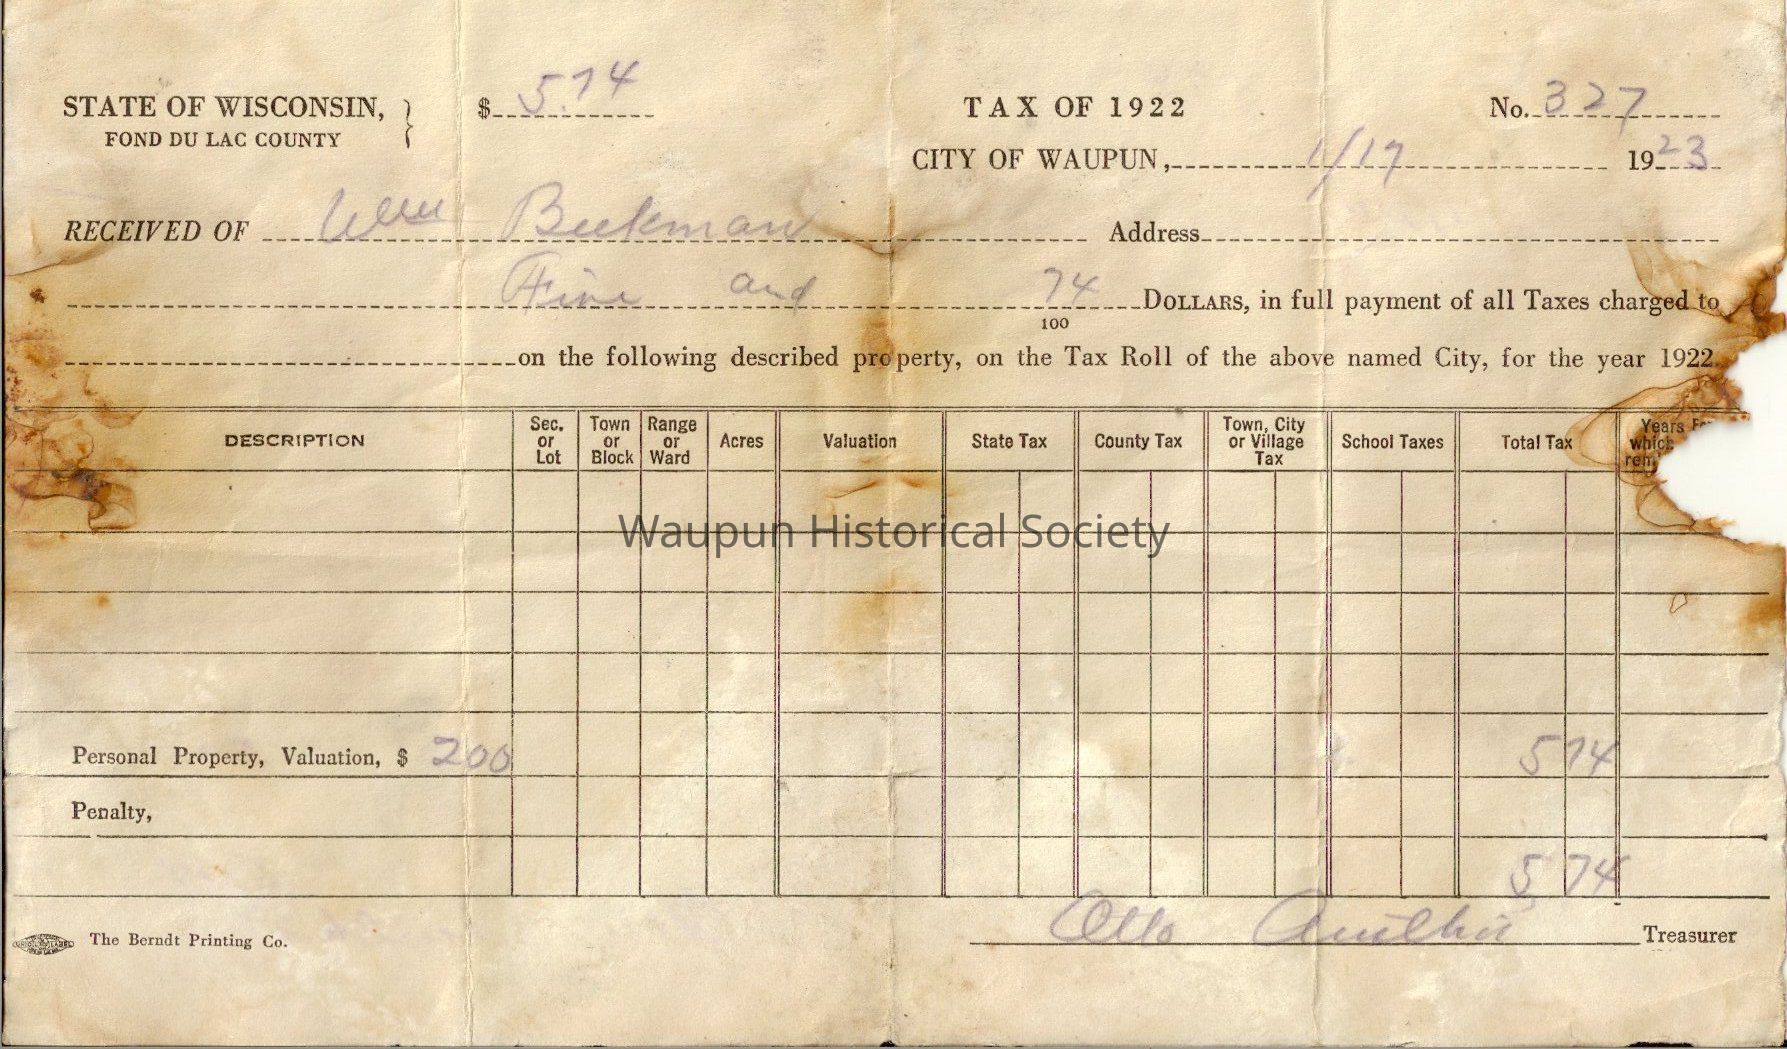 STATE OF WISCONSIN, } $ 5.74 TAX OF 1922 No. 327
FOND DU LAC COUNTY
CITY OF WAUPUN, 1/17 1923
RECEIVED OF Wm Beekman Address
Five and 74/100 DOLLARS, in full payment of all Taxes charged to
on the following described property, on the Tax Roll of the above named City, for the year 1922.
DESCRIPTION Sec. or Lot Town or Block Range or Ward Acres Valuation State Tax County Tax Town, City or Village Tax School Taxes Total Tax Years For which
Waupun Historical Society
Personal Property, Valuation, $ 200 5 74
Penalty,
5 74
Otto Treasurer
The Berndt Printing Co.